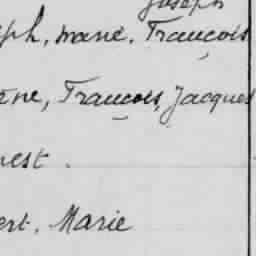 Joseph
ph, marie, François
rne, François, Jacques
nest.
ert, Marie